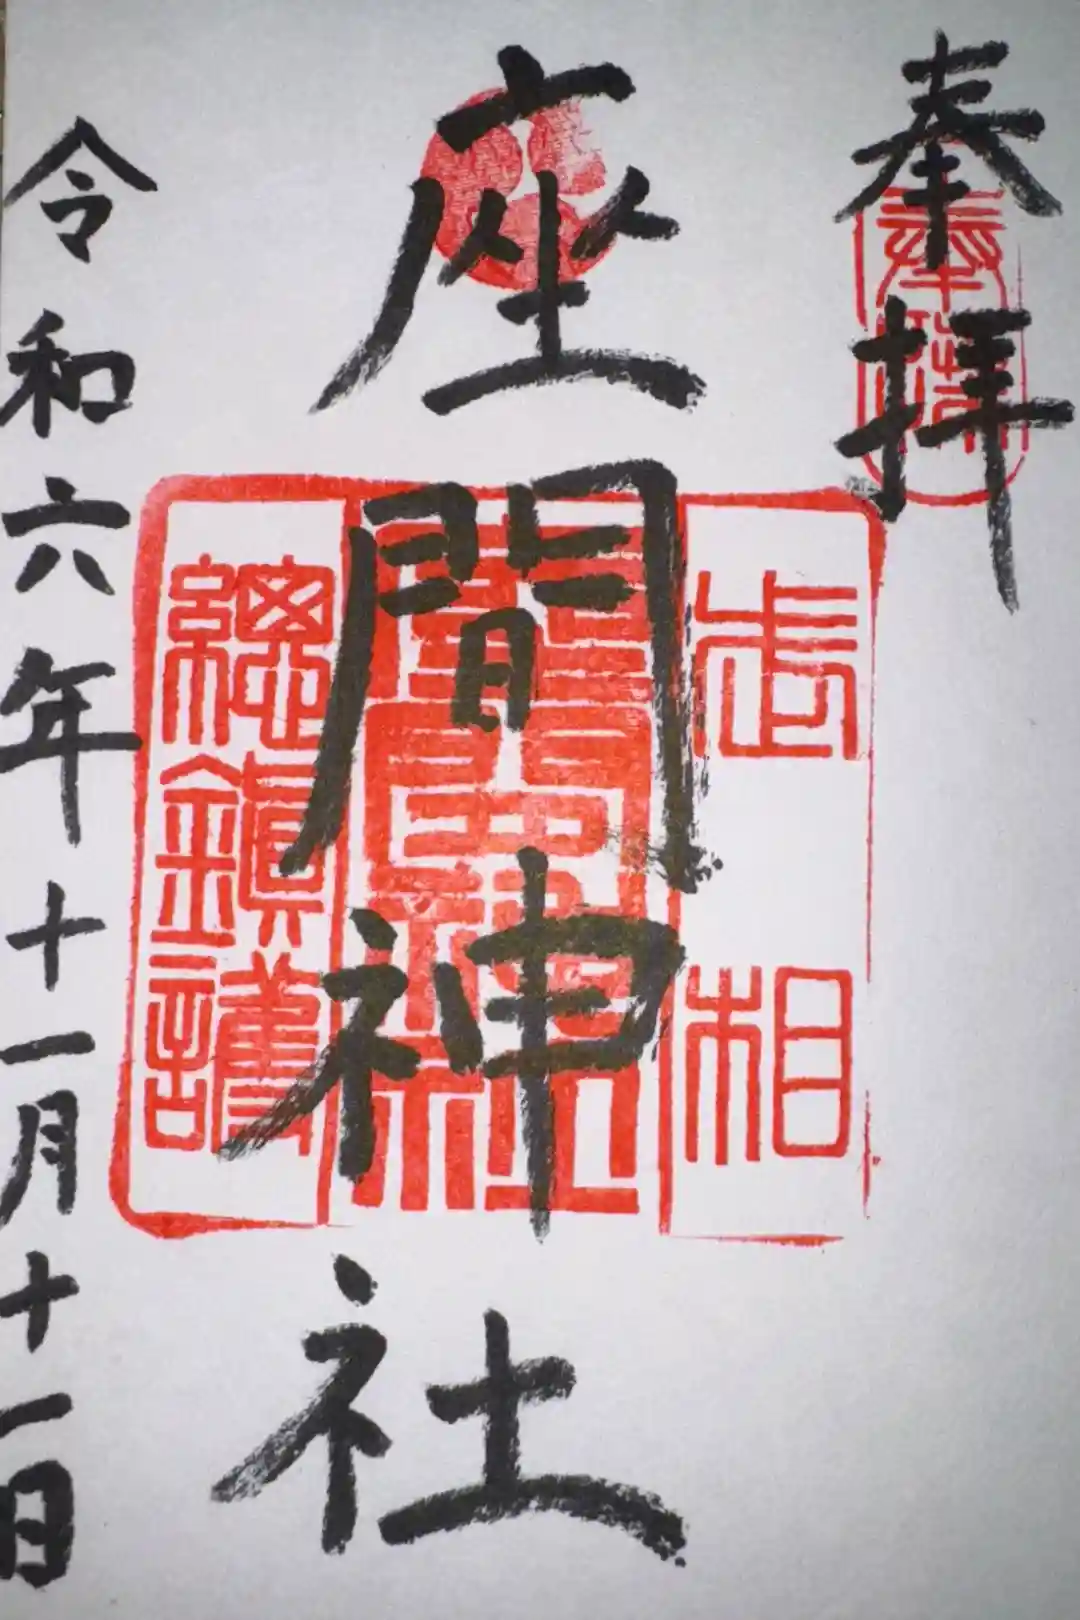 奉拝
奉拝
武相
座間神社
座間神社
總鎮護
令和六年十一月十一日